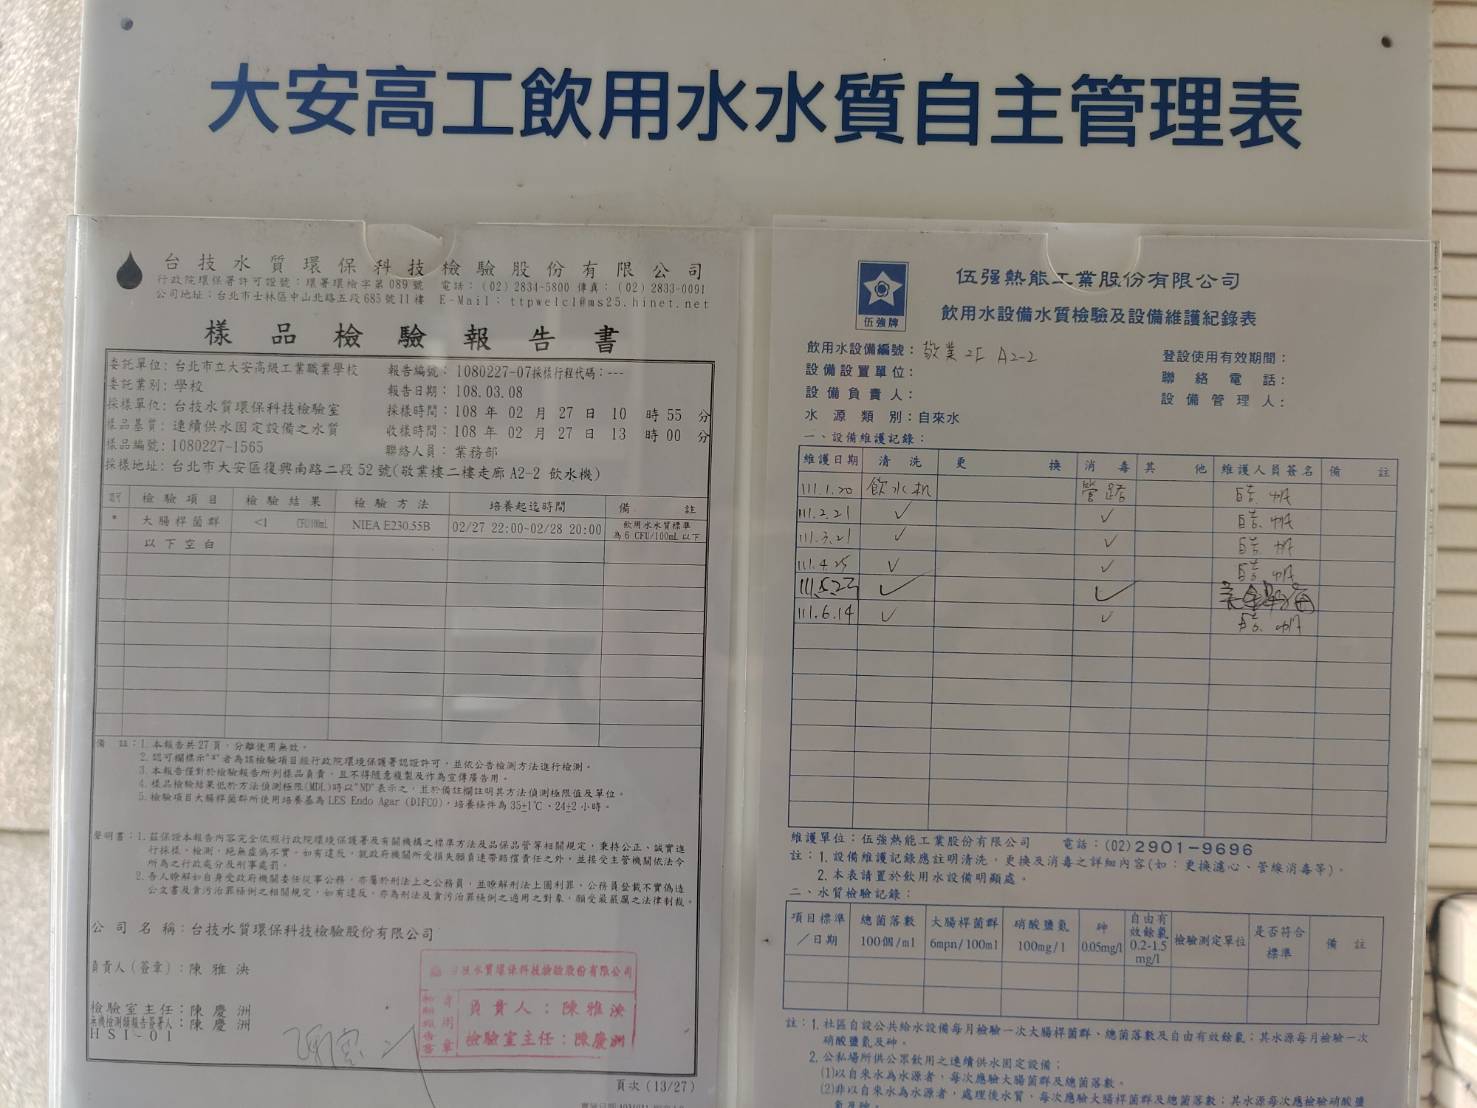 大安高工飲用水水質自主管理表
台技水質環保科技檢驗股份有限公司
行政院環保署許可證號：環署環檢字第089號 電話：(02)2834-5800 傳真：(02)2833-0091
公司地址：台北市士林區中山北路五段685號11樓 E-Mail：ttpwelcl@ms25.hinet.net
樣品檢驗報告書
委託單位：台北市立大安高級工業職業學校 報告編號：1080227-07採樣行程代碼：---
委託業別：學校 報告日期：108.03.08
採樣單位：台技水質環保科技檢驗室 採樣時間：108年02月27日10時55分
樣品基質：連續供水固定設備之水質 收樣時間：108年02月27日13時00分
樣品編號：1080227-1565 聯絡人員：業務部
採樣地址：台北市大安區復興南路二段52號(敬業樓二樓走廊A2-2 飲水機)
檢驗項目 檢驗結果 檢驗方法 培養起迄時間 備註
* 大腸桿菌群 <1 CFU/100mL NIEA E230.55B 02/27 22:00~02/28 20:00 飲用水水質標準為6 CFU/100mL以下
以下空白
備註：1.本報告共27頁，分離使用無效。
2.認可欄標示"*"者為該檢驗項目經行政院環境保護署認證許可，並依公告檢測方法進行檢測。
3.本報告僅對於檢驗報告所列樣品負責，且不得隨意複製及作為宣傳廣告用。
4.樣品檢驗結果低於方法偵測極限(MDL)時以"ND"表示之，並於備註欄註明其方法偵測極限值及單位。
5.檢驗項目大腸桿菌群所使用培養基為LES Endo Agar (DIFCO)，培養條件為35±1℃、24±2小時。
聲明書：1.茲保證本報告內容完全依照行政院環境保護署及有關機構之標準方法及品保品管等相關規定，秉持公正、誠實進
行採樣、檢測，絕無虛偽不實，如有違反，就政府機關所受損失願負連帶賠償責任之外，並接受主管機關依法令
所為之行政處分及刑事處罰。
2.吾人瞭解如自身受政府機關委任從事公務，亦屬於刑法上之公務員，並瞭解刑法上圖利罪、公務員登載不實偽造
公文書及貪污治罪條例之相關規定，如有違反，亦為刑法及貪污治罪條例之適用之對象，願受最嚴厲之法律制裁。
公司名稱：台技水質環保科技檢驗股份有限公司
負責人(簽章)：陳雅泱
檢驗室主任：陳慶洲
無機檢測類報告簽署人：陳慶洲
HSI-01
台技水質環保科技檢驗股份有限公司
負責人：陳雅泱
檢驗室主任：陳慶洲
頁次(13/27)
伍強牌
伍強熱能工業股份有限公司
飲用水設備水質檢驗及設備維護紀錄表
飲用水設備編號：敬業2F A2-2 登設使用有效期間：
設備設置單位： 聯絡電話：
設備負責人： 設備管理人：
水源類別：自來水
一、設備維護記錄：
維護日期 清洗 更換 消毒 其他 維護人員簽名 備註
111.1.20 飲水机 管路
111.2.21 ✓ ✓
111.3.21 ✓ ✓
111.4.25 ✓ ✓
111.5.23 ✓ ✓
111.6.14 ✓ ✓
維護單位：伍強熱能工業股份有限公司 電話：(02)2901-9696
註：1.設備維護記錄應註明清洗、更換及消毒之詳細內容(如：更換濾心、管線消毒等)。
2.本表請置於飲用水設備明顯處。
二、水質檢驗記錄：
項目標準／日期 總菌落數100個/ml 大腸桿菌群6mpn/100ml 硝酸鹽氮100mg/l 砷0.05mg/l 自由有效餘氯0.2-1.5mg/l 檢驗測定單位 是否符合標準 備註
註：1.社區自設公共給水設備每月檢驗一次大腸桿菌群、總菌落數及自由有效餘氯；其水源每月檢驗一次
硝酸鹽氮及砷。
2.公私場所供公眾飲用之連續供水固定設備：
(1)以自來水為水源者，每次應驗大腸桿菌群及總菌落數。
(2)非以自來水為水源者，處理後水質，每次應驗大腸桿菌群及總菌落數；其水源每次應檢驗硝酸鹽
氮及砷。